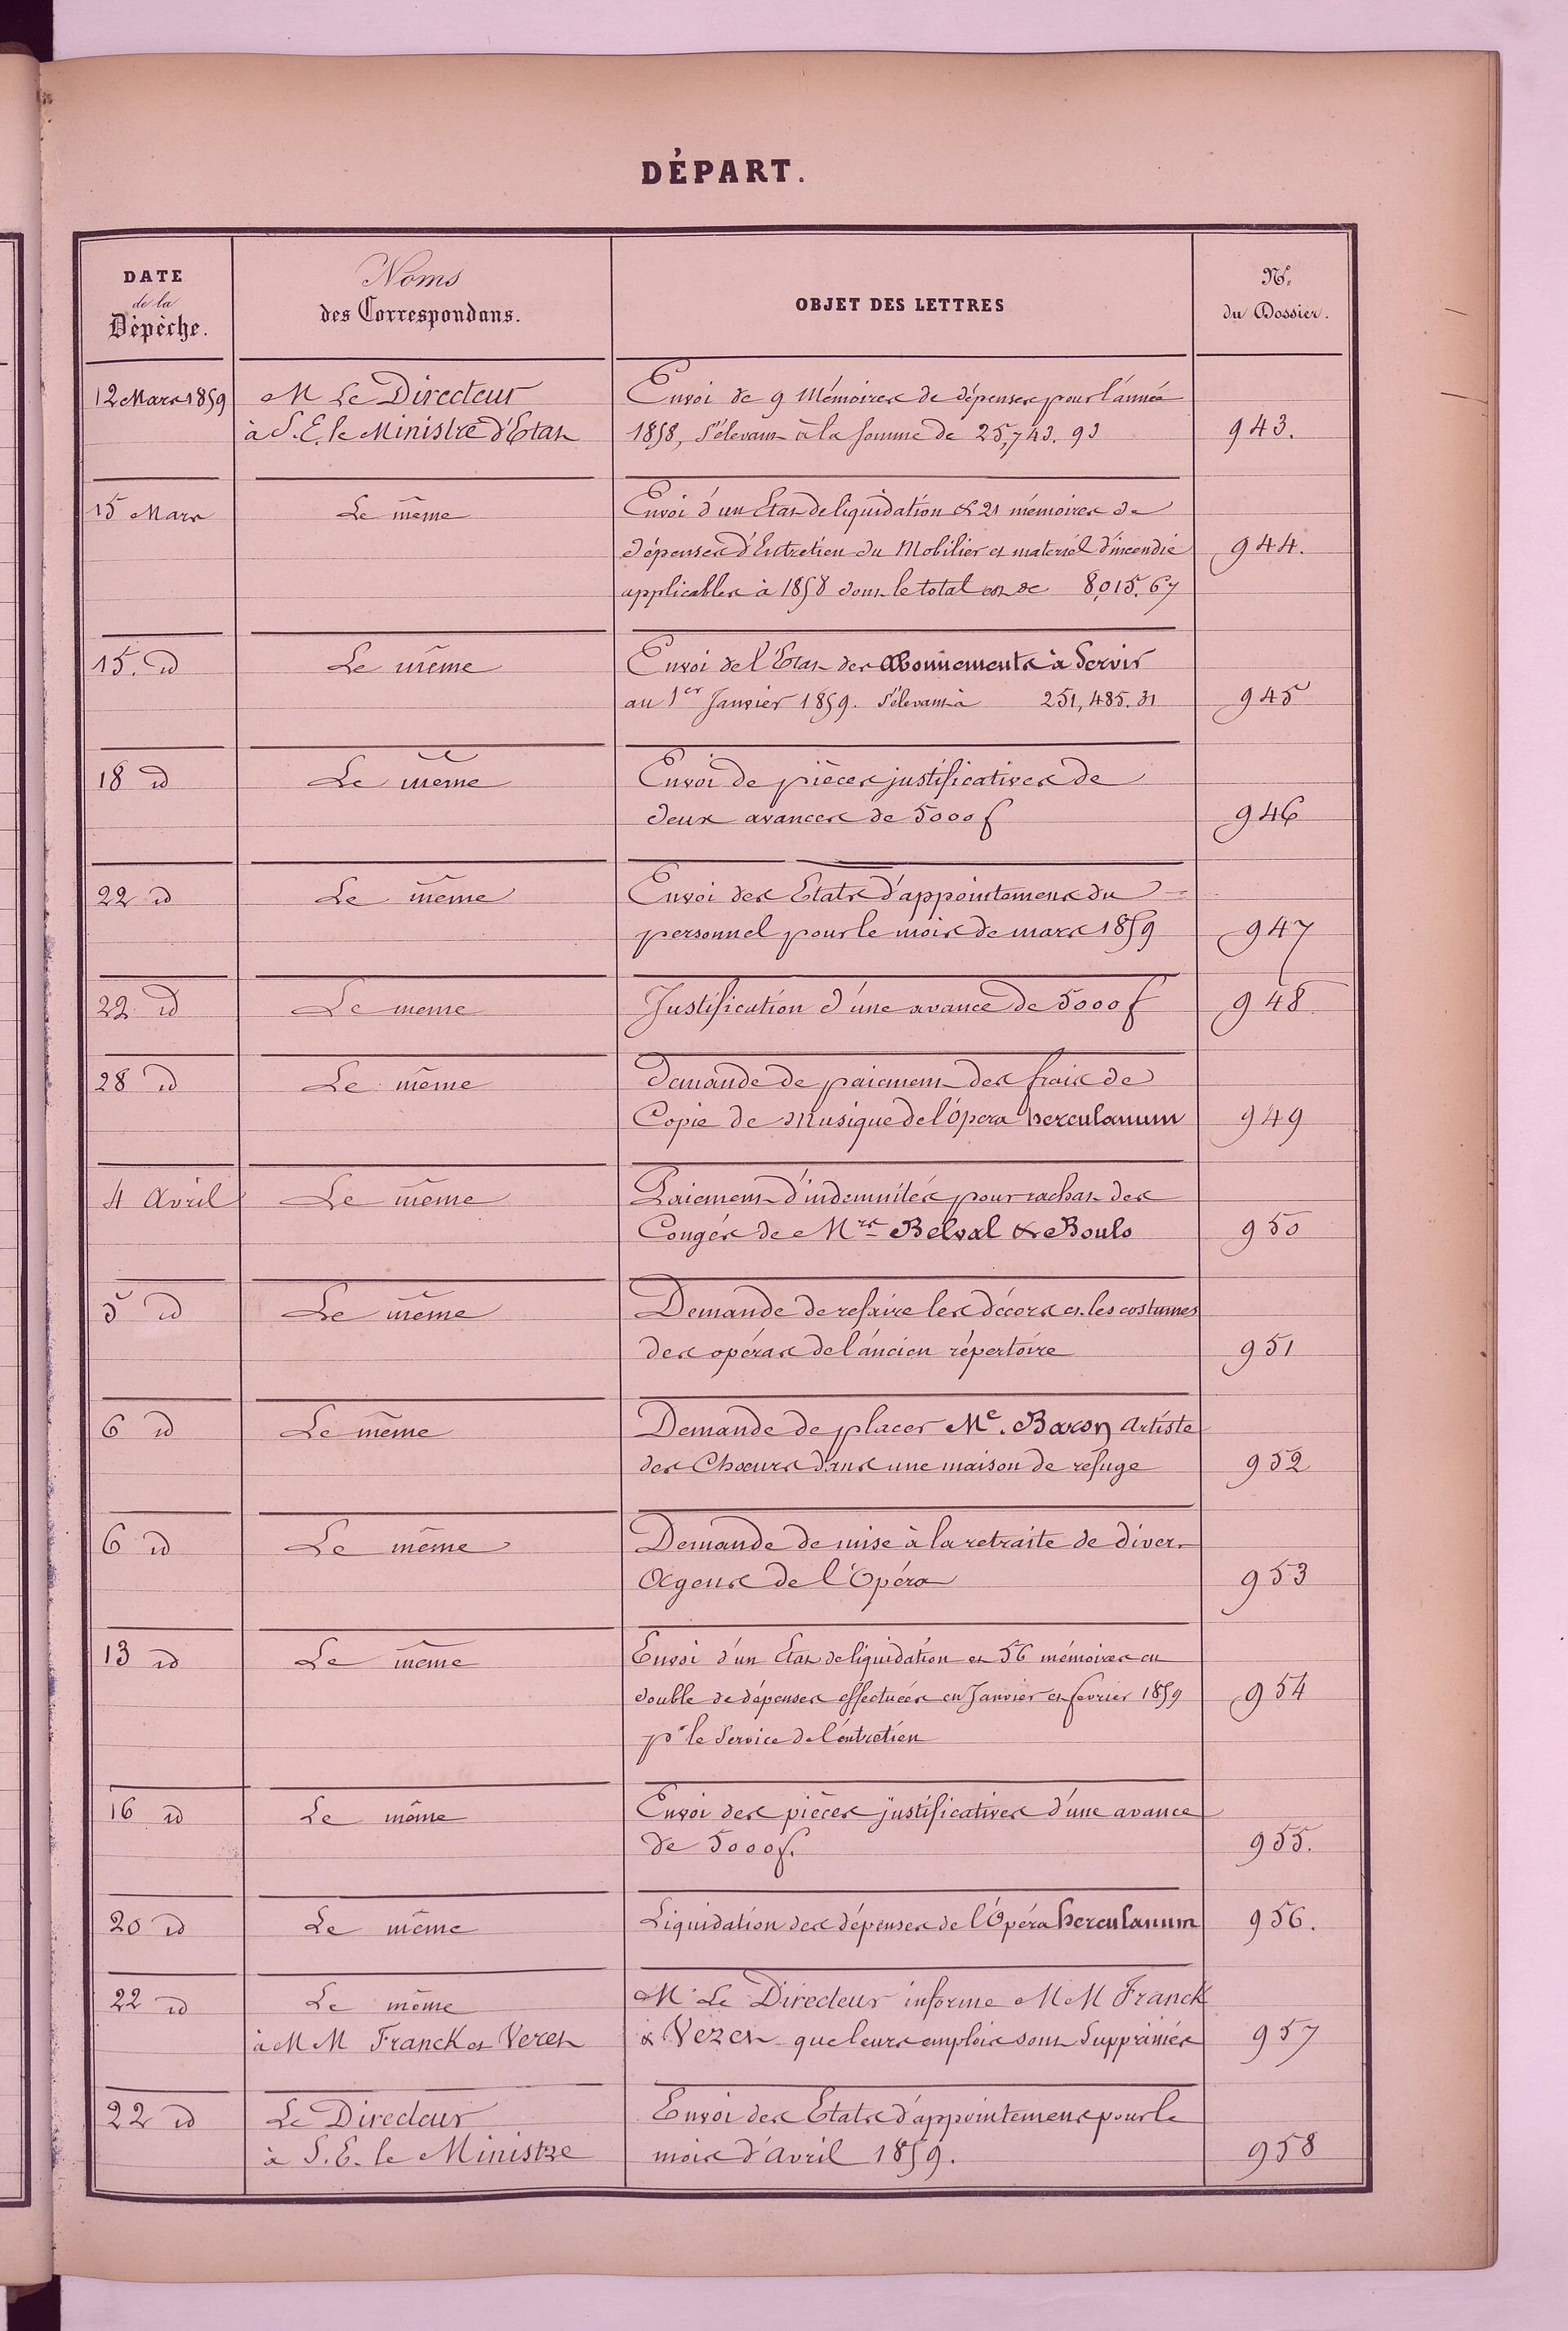 DÉPART.
DATE
de la
Dépêche.
Noms
des Correspondans.
OBJET DES LETTRES
No.
du Dossier.
12 Mars 1859
M Le Directeur
à S. E. le Ministre d'Etat
Envoi de 9 Mémoires de dépenses pour l'année
1858, s'élevant à la somme de 25,743. 93
943.
15 Mars
Le même
Envoi d'un Etat de liquidation & 21 mémoires de
dépenses d'Entretien du Mobilier et matériel d'incendie
applicables à 1858 dont le total est de 8,015. 67
944.
15. id
Le même
Envoi de l'Etat des Abonnements à Servir
au 1er Janvier 1859. s'élevant à 251,485. 31
945
18 id
Le même
Envoi de pièces justificatives de
deux avances de 5000 f
946
22 id
Le même
Envoi des Etats d'appointemens du
personnel pour le mois de mars 1859
947
22 id
Le meme
Justification d'une avance de 5000 f
948
28 id
Le même
Demande de paiement des frais de
Copie de Musique de l'Opera herculanum
949
4 Avril
Le même
Paiement d'indemnités pour rachat des
Congés de Mrs Belval & Boulo
950
5 id
Le même
Demande de refaire les décors et les costumes
des opéras de l'ancien répertoire
951
6 id
Le même
Demande de placer Me. Baron Artiste
des Chœurs dans une maison de refuge
952
6 id
Le même
Demande de mise à la retraite de divers
Agens de l'Opéra
953
13 id
Le même
Envoi d'un Etat de liquidation et 56 mémoires en
double de dépenses effectuées en Janvier et fevrier 1859
pr le Service de l'entretien
954
16 id
Le même
Envoi des pièces justificatives d'une avance
de 5000 f.
955.
20 id
Le même
Liquidation des dépenses de l'Opéra herculanum
956.
22 id
Le même
à M M Franck et Veret
M Le Directeur informe M M Franck
& Vezet que leurs emplois sont Supprimés
957
22 id
Le Directeur
à S. E. le Ministre
Envoi des Etats d'appointemens pour le
mois d'Avril 1859.
958